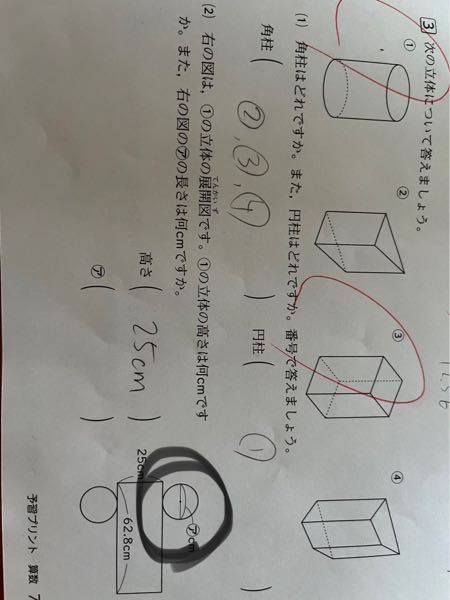 3 次の立体について答えましょう。
① ② ③ ④
(1) 角柱はどれですか。また，円柱はどれですか。番号で答えましょう。
角柱( ②,③,④ ) 円柱( ① )
(2) 右の図は，①の立体の展開図です。①の立体の高さは何cmです
てんかいず
か。また，右の図の㋐の長さは何cmですか。
高さ( 25cm )
㋐( )
㋐cm
25cm
62.8cm
予習プリント 算数 7